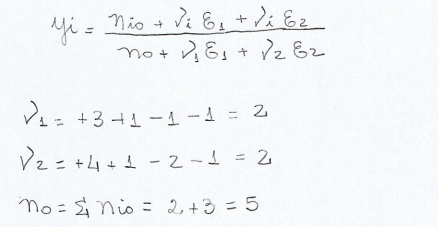 yi = nio + νi ε1 + νi ε2 / no + ν1 ε1 + ν2 ε2
ν1 = +3 +1 -1 -1 = 2
ν2 = +4 +1 -2 -1 = 2
no = Σ nio = 2+3 = 5